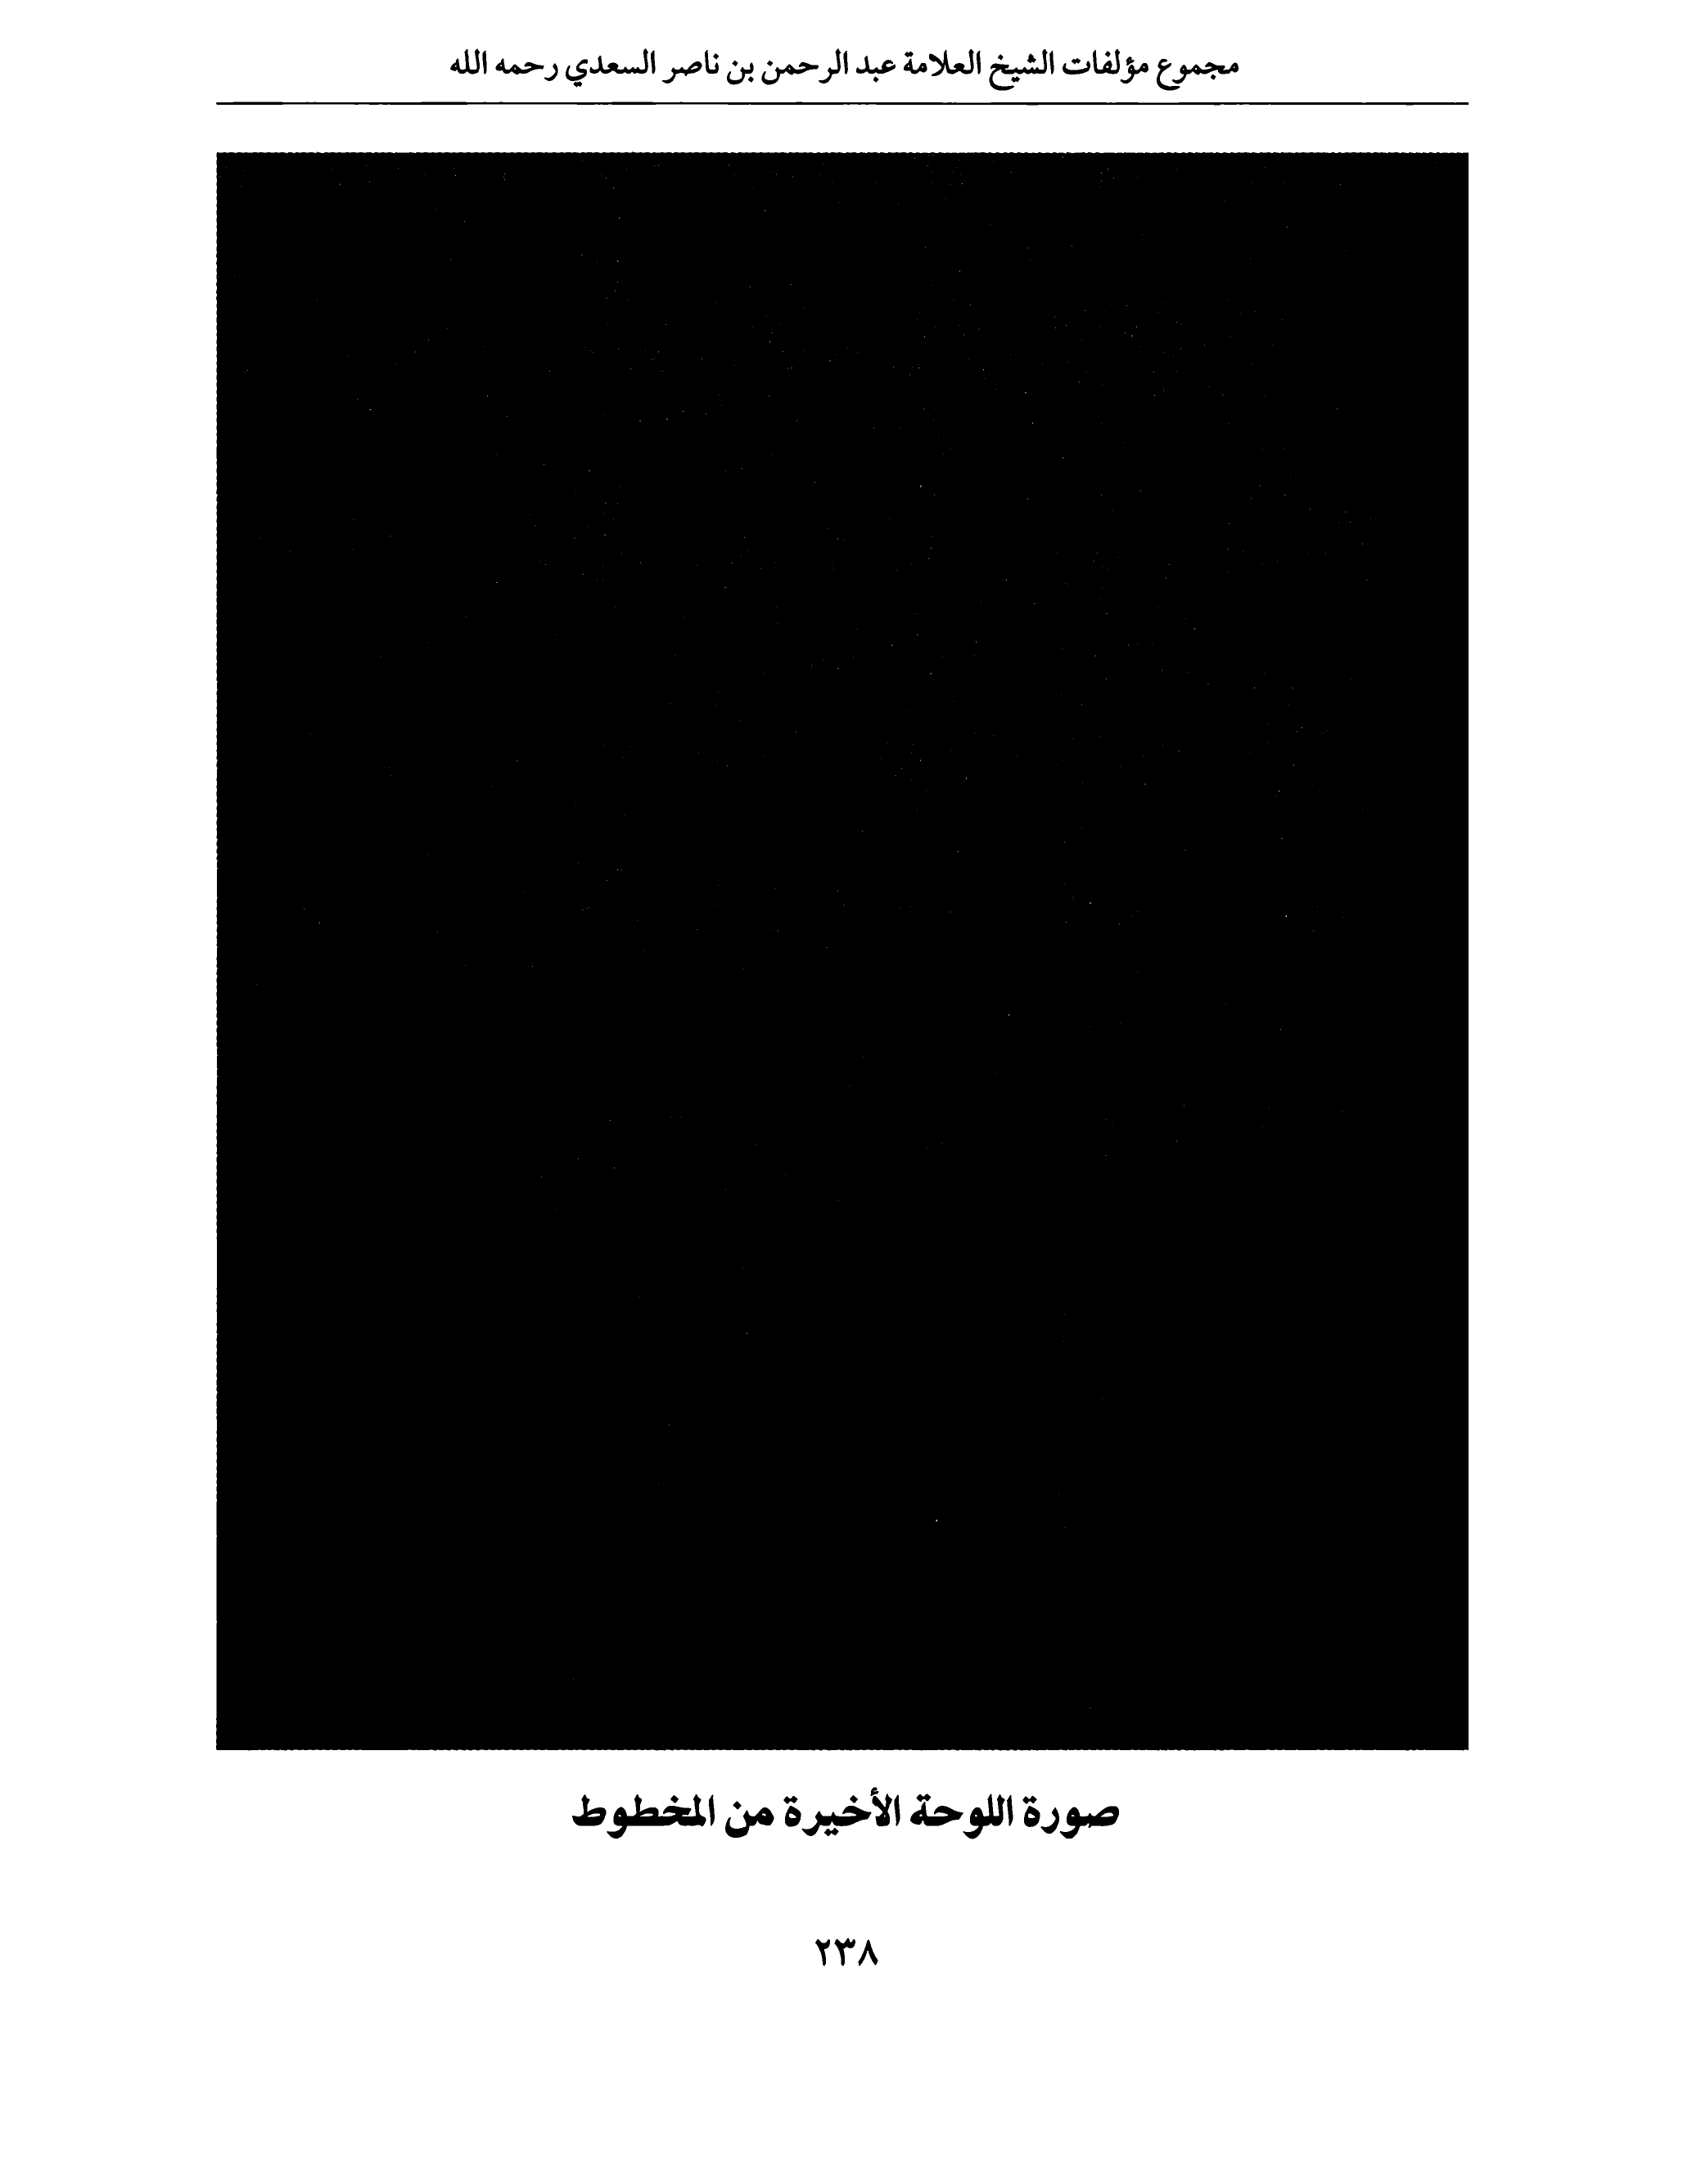 مجموع مؤلفات الشيخ العلامة عبد الرحمن بن ناصر السعدي رحمه الله
صورة اللوحة الأخيرة من المخطوط
٢٣٨